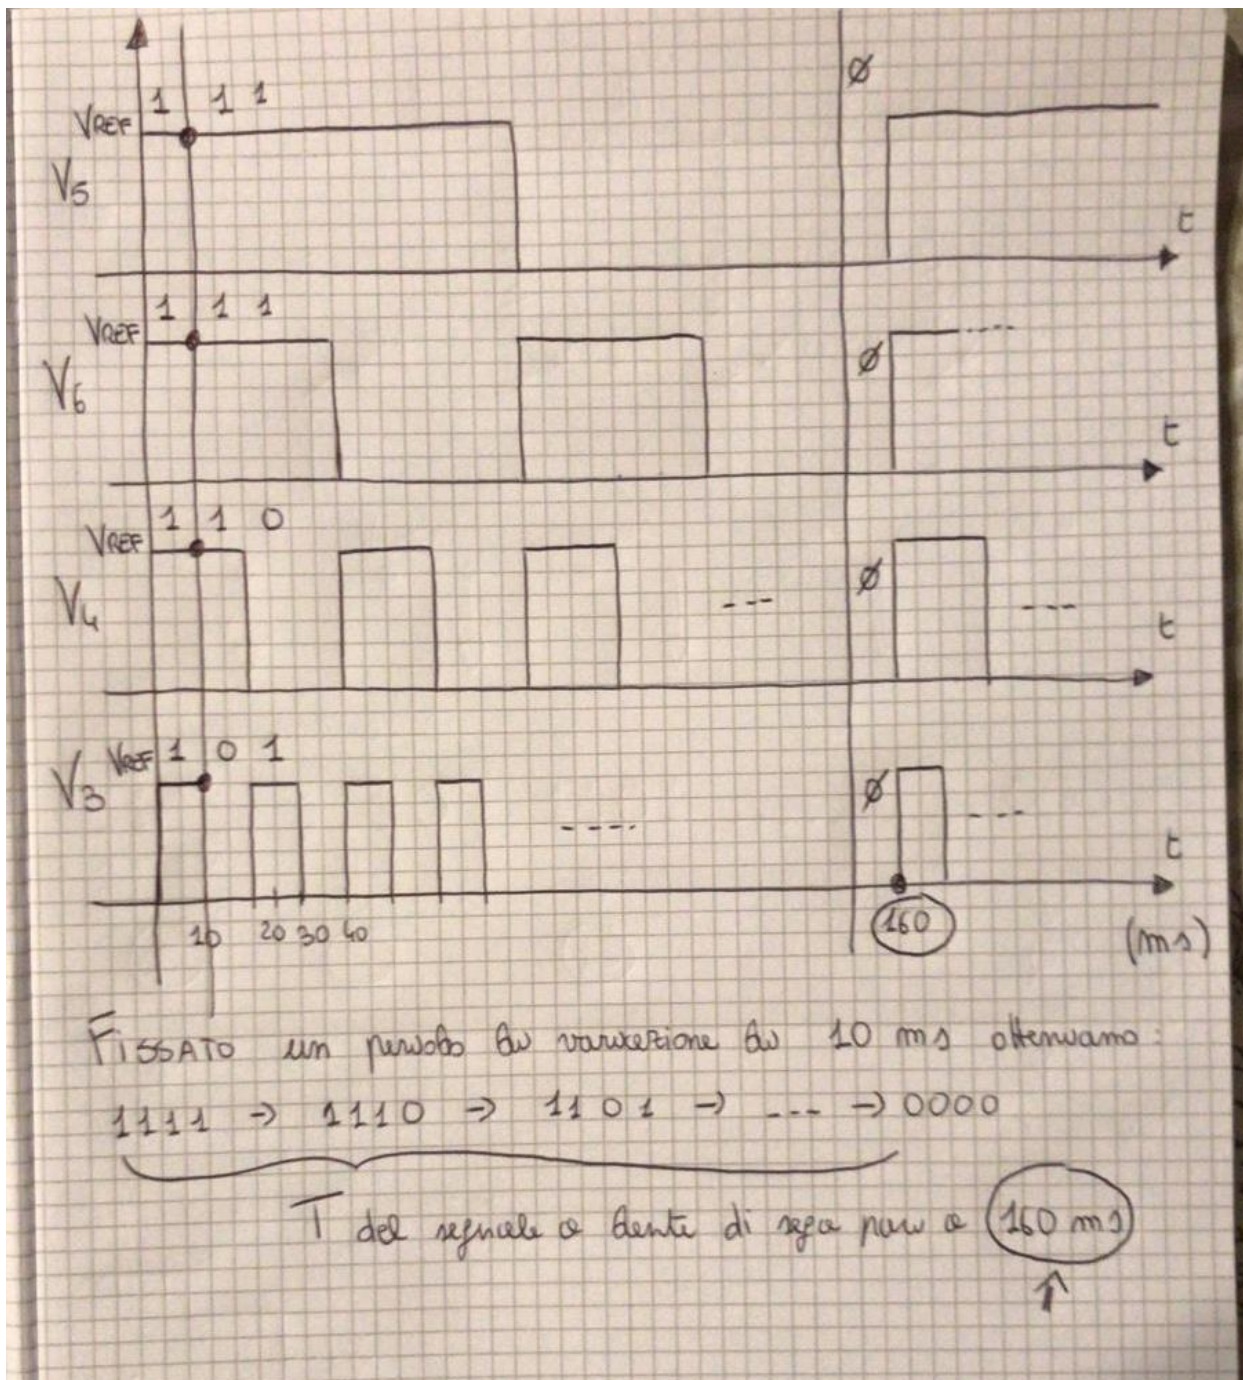 Ø
1 1 1
VREF
V5
t
1 1 1
VREF
Ø
V6
t
1 1 0
VREF
Ø
V4
---
---
t
V3
VREF 1 0 1
Ø
----.
---
t
10 20 30 40
160
(ms)
FISSATO un periodo di variazione di 10 ms otteniamo:
1111 → 1110 → 1101 → --- → 0000
T del segnale a dente di sega pari a 160 ms
↑